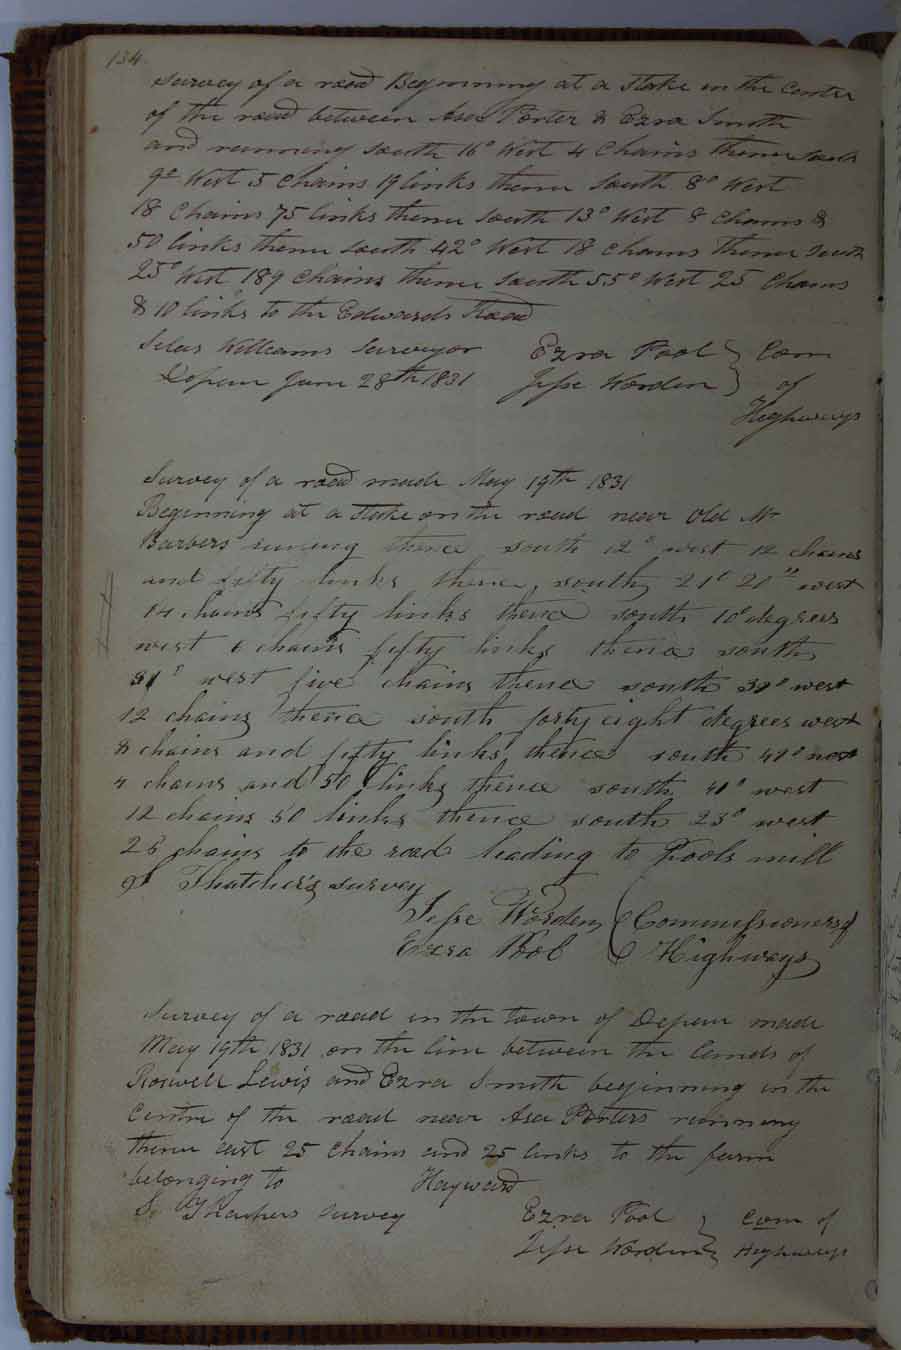 134.
Survey of a road Beginning at a Stake in the Center
of the road between Asa Porter & Ezra Smith
and running South 16° West 4 Chains thence South
9° West 5 Chains 19 links thence South 8° West
18 Chains 75 links thence South 13° West 8 Chains &
50 links thence South 42° West 18 Chains thence South
25° West 189 Chains thence South 55° West 25 Chains
& 10 links to the Edwards Road
Silas Williams Surveyor Ezra Pool } Com
June 28th 1831 Jesse Worden } of
Highways
Survey of a road made May 19th 1831
Beginning at a Stake on the road near Old Mr
Barbers runing thence south 12° west 12 chains
and fifty links thence south 21° 21" west
14 chains fifty links thence south 10° degrees
west 6 chains fifty links thence south
31° west five chains thence south west
12 chains thence south forty eight degrees west
8 chains and fifty links thence south west
4 chains and 50 links thence south 41° west
12 chains 50 links thence south 25° west
26 chains to the road leading to Pools mill
S Thatcher's survey
Jesse Worden } Commissioners of
Ezra Pool } Highways
Survey of a road in the town of Depau made
May 19th 1831 on the line between the lands of
Roswell Lewis and Ezra Smith beginning in the
Centre of the road near Asa Porters running
thence east 25 Chains and 25 links to the farm
belonging to Hayward
S. Thachers Survey Ezra Pool } Com of
Jesse Worden } Highways